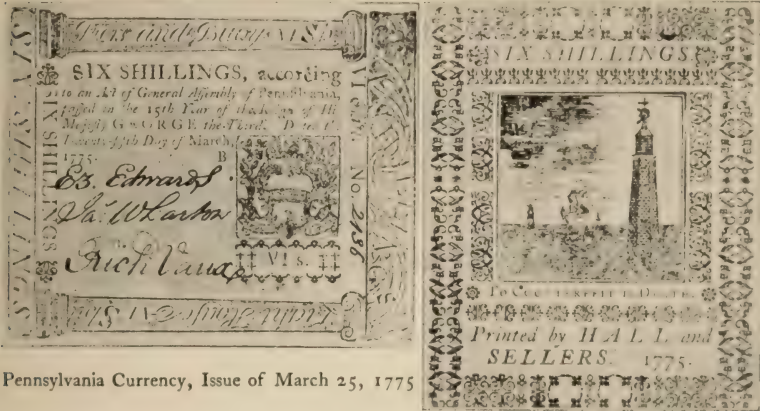 SIX SHILLINGS, according
to an Act of General Assembly of Pennsylvania,
passed in the 15th Year of the Reign of His
Majesty GEORGE the Third. Dated the
Twenty-fifth Day of March,
1775. B
Ez. Edwards
Ja. Wharton
Rich Vaux
VI s.
SIX SHILLINGS
SIX SHILLINGS
VI s. No. 2186
SIX SHILLINGS
To COUNTERFEIT is DEATH.
Printed by HALL and
SELLERS. 1775.
Pennsylvania Currency, Issue of March 25, 1775